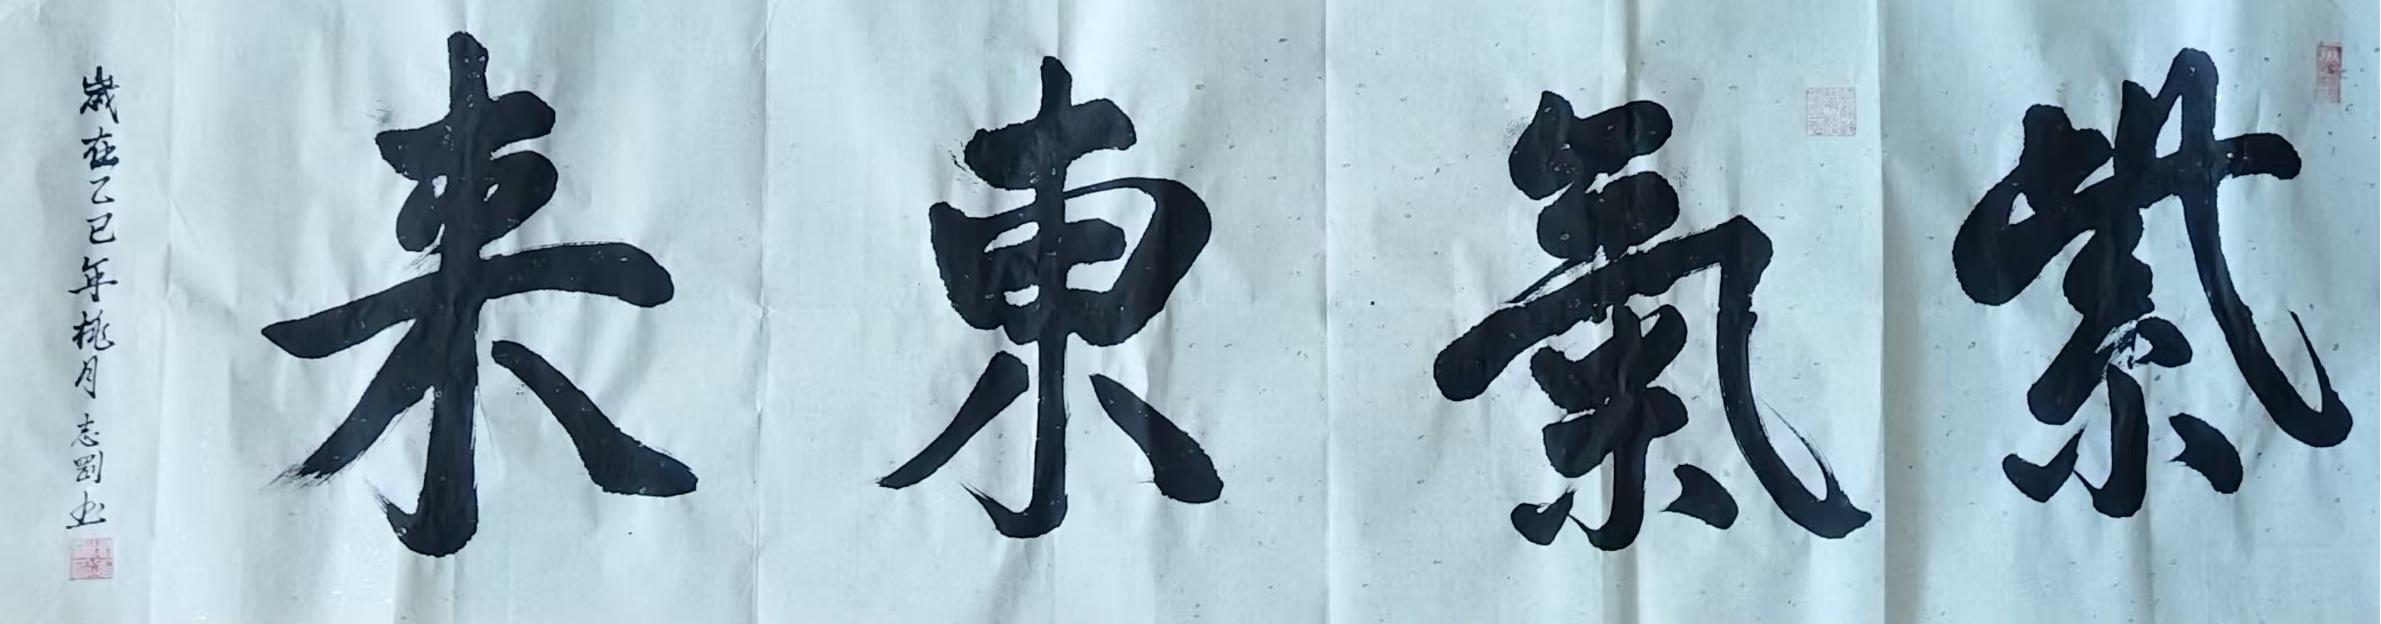 紫氣東来
歲在乙巳年桃月志劉书